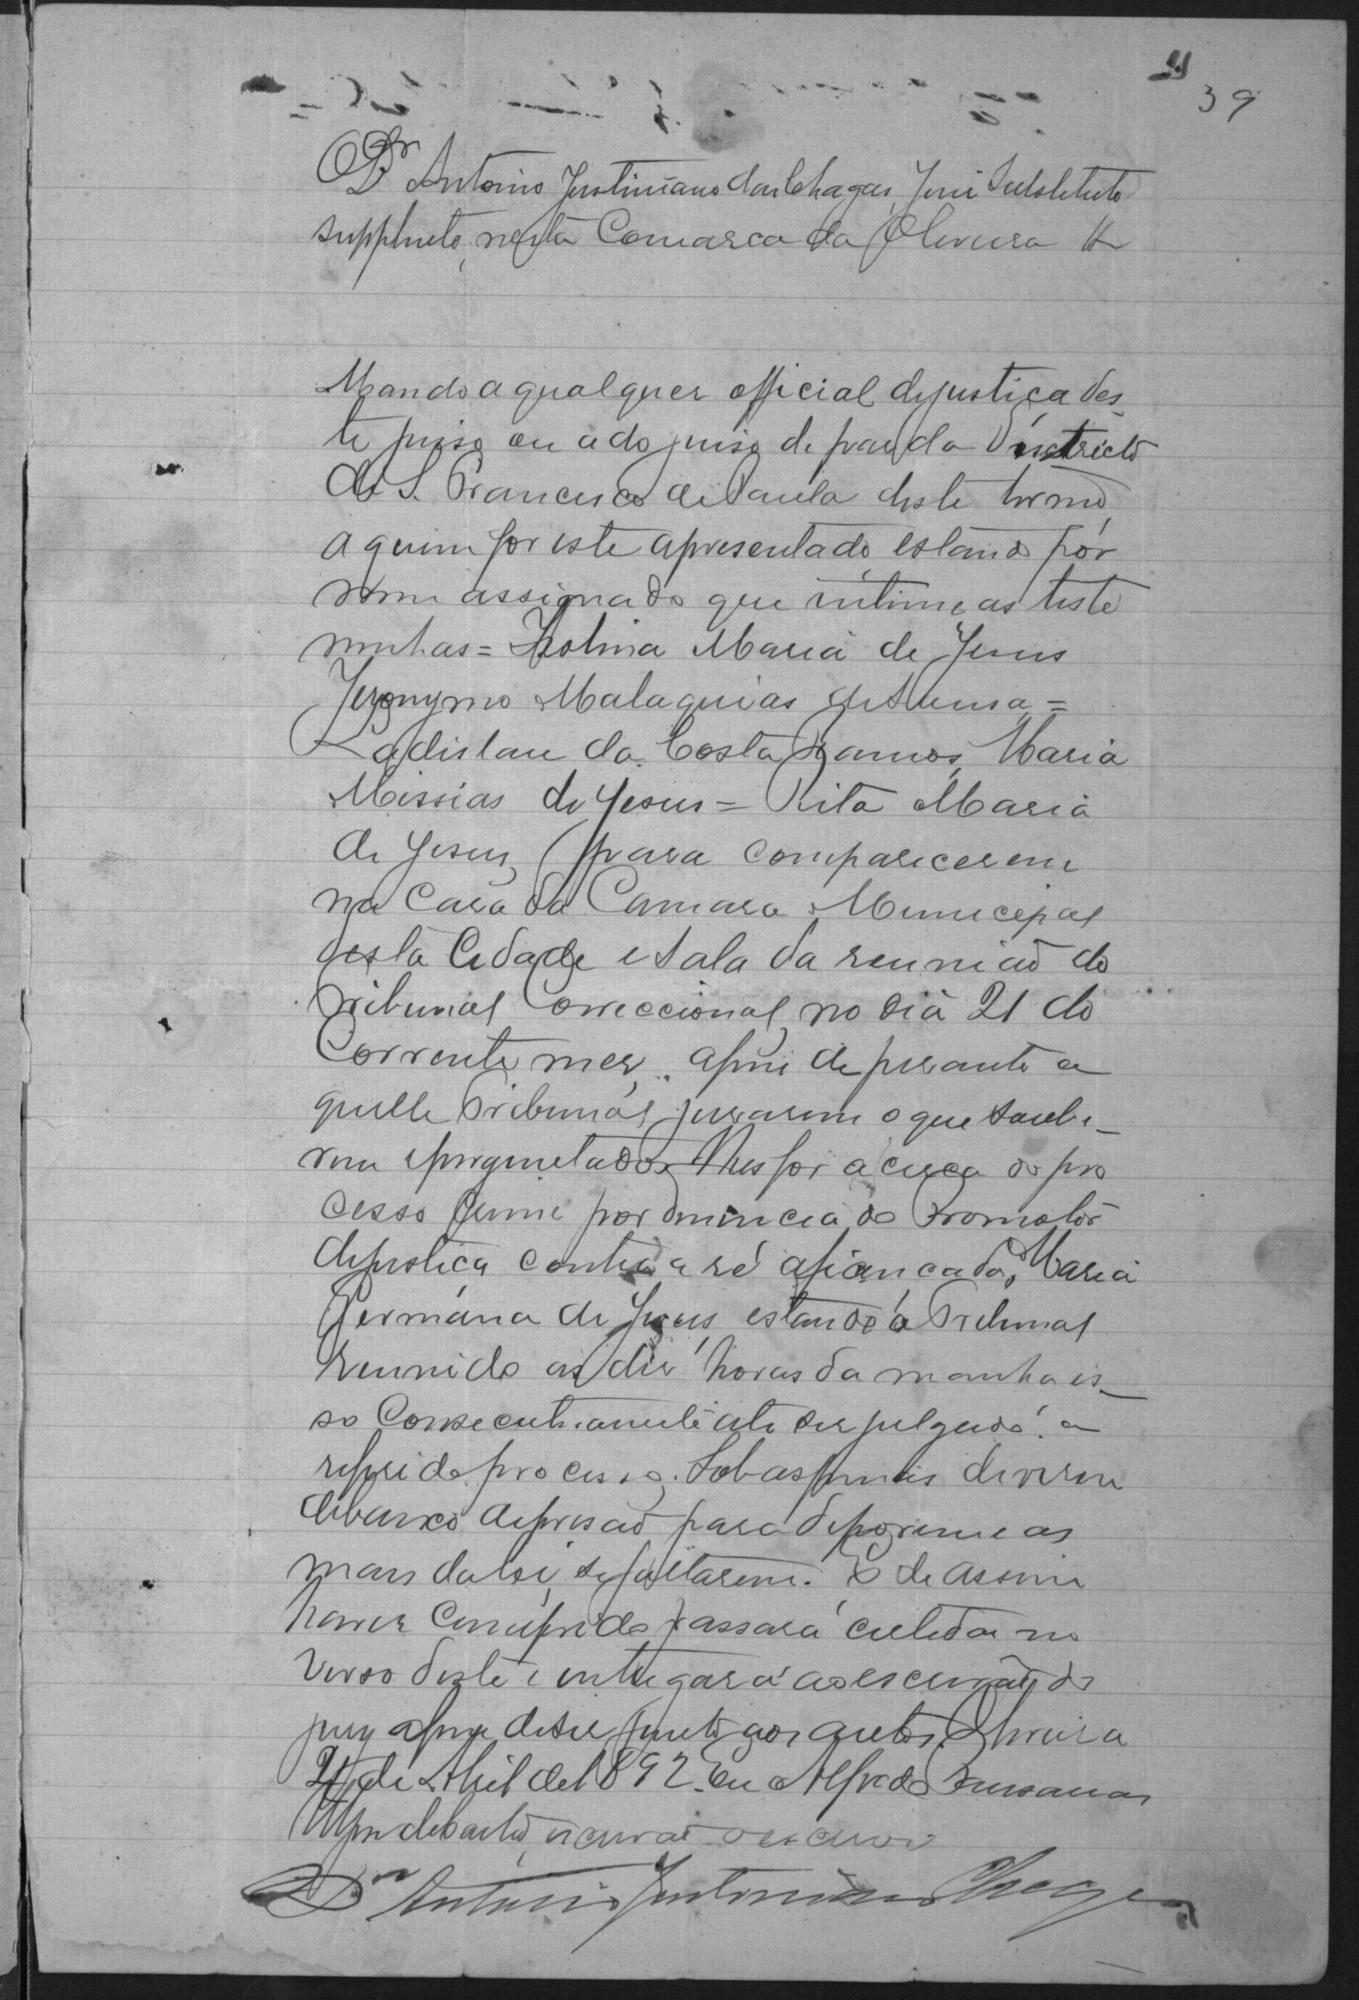 39
O Dr Antonio Justiniano das Chagas, Juis Substituto
supplente, nesta Comarca da Oliveira
Mando a qualquer official de justiça des-
te juiso ou a do juiso de paz do Districto
de S. Francisco de Paula deste termo,
a quem for este apresentado, estando por
mim assignado que intime as teste
munhas = Isolina Maria de Jesus
Jeronymo Malaquias de Sousa =
Ladislau da Costa Ramos, Maria
Missias de Jesus = Rita Maria
de Jesus, para comparecerem
na Casa da Camara Municipal
desta Cidade e Sala da reunião do
Tribunal Correccional, no dia 21 do
Corrente mez, afim de perante a
quelle Tribunal jurarem o que soube-
rem e perguntado lhes for acerca do pro
cesso crime por denuncia do Promotor
de justiça contra a ré afiançada, Maria
Germana de Jesus, estando o Tribunal
reunido as dez horas da manha is-
so Consecutivamente ate ser julgado o
referido processo. Sob as penas de virem
debaixo de prisão para deporem e as
mais da lei, se faltarem. E de assim
haver Cumprido passará certidão no
verso deste e entregará ao escrivão do
jury afim de ser junto aos autos. Oliveira
de Abril de 1892. Eu Alfredo
escrivão o escrevi
Dr Antonio Justiniano Chagas